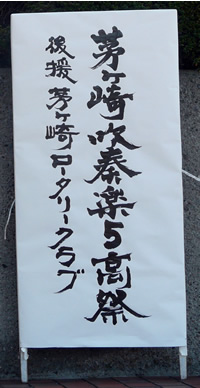 茅ヶ崎吹奏楽5高祭
後援 茅ヶ崎ロータリークラブ